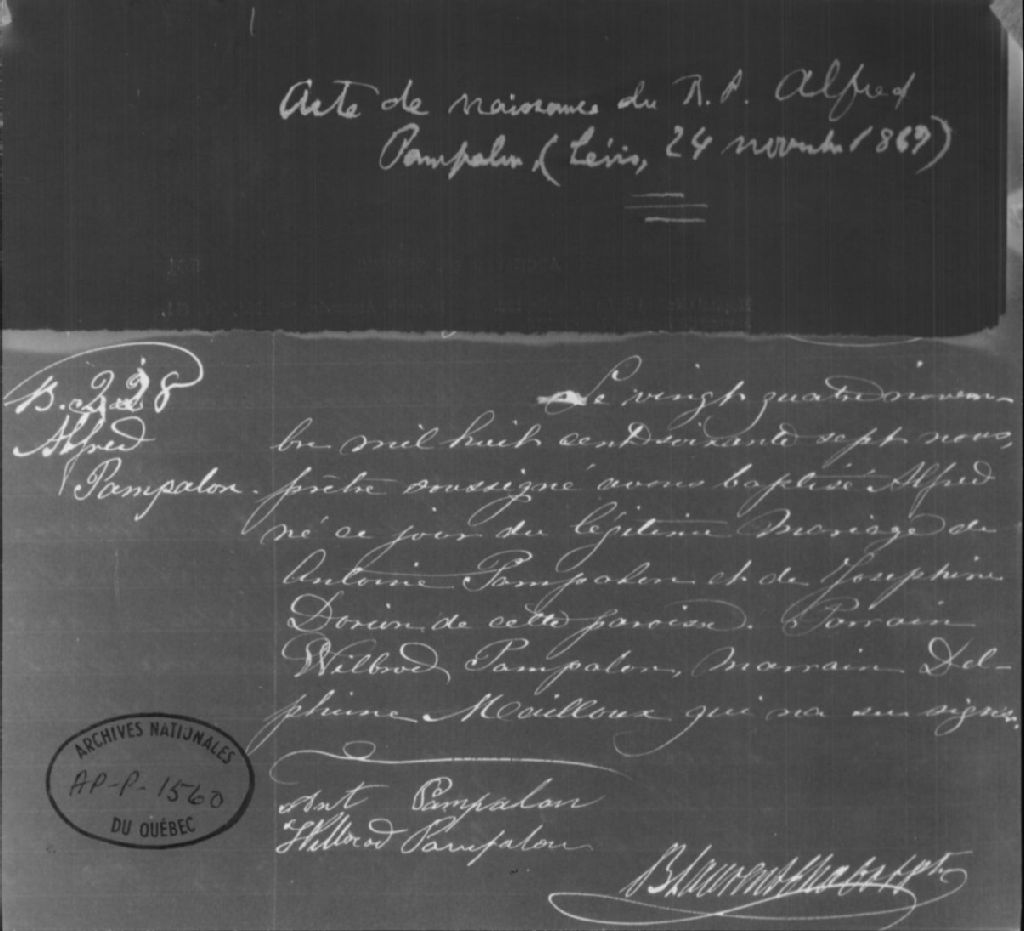 Acte de naissance du R. P. Alfred
Pampalon, (Lévis, 24 novembre 1869)
B. 228
Alfred
Pampalon.
Le vingt quatre novem-
bre mil huit cent soixante sept nous,
prêtre soussigné avons baptisé Alfred
né ce jour du légitime Mariage de
Antoine Pampalon et de Josephine
Dorion de cette paroisse. Parrain
Wilbrod Pampalon, marraine Del-
phine Mailloux qui n'a su signer.
Ant Pampalon
Wilbrod Pampalon
ARCHIVES NATIONALES
AP-P-1560
DU QUÉBEC